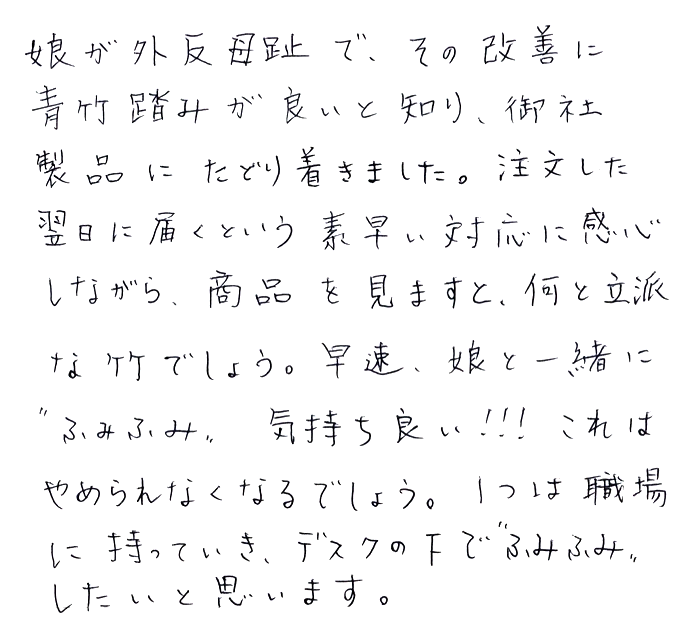 娘が外反母趾で、その改善に
青竹踏みが良いと知り、御社
製品にたどり着きました。注文した
翌日に届くという素早い対応に感心
しながら、商品を見ますと、何と立派
な竹でしょう。早速、娘と一緒に
〝ふみふみ〟 気持ち良い!!! これは
やめられなくなるでしょう。1つは職場
に持っていき、デスクの下で〝ふみふみ〟
したいと思います。